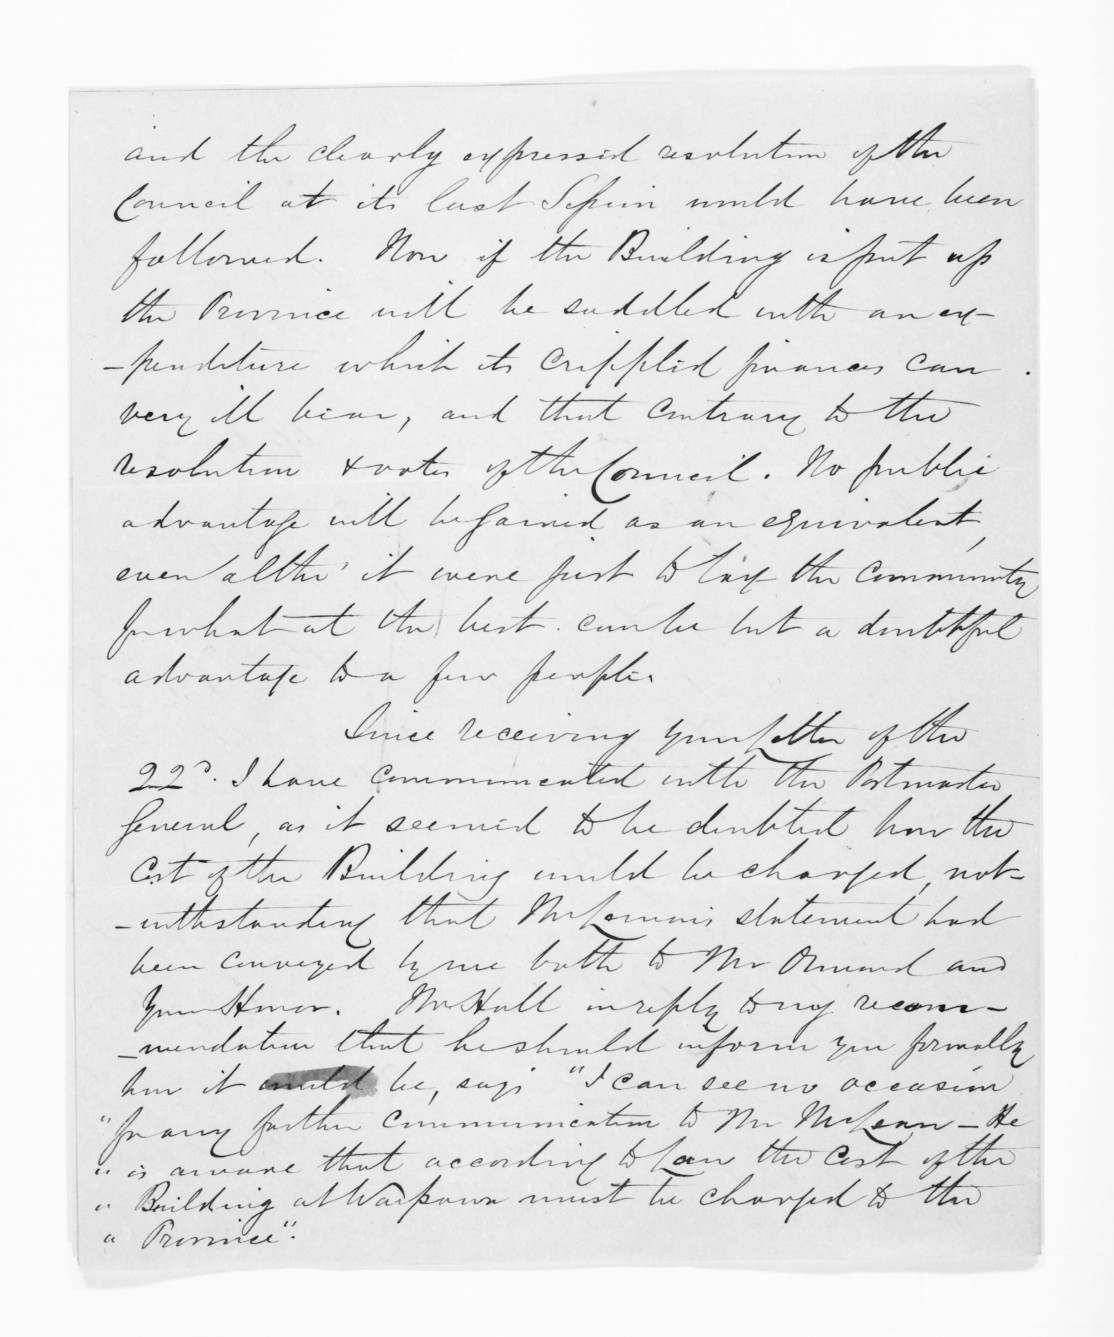 and the clearly expressed resolution of the
Council at its last Session would have been
followed. Now if the Building is put up
the Province will be saddled with an ex-
-penditure which its crippled finances can
very ill bear, and that contrary to the
resolution & votes of the Council. No public
advantage will be gained as an equivalent,
even altho' it were just to tax the community
for what at the best can be but a doubtful
advantage to a few people.
Since receiving your Letter of the
22d. I have communicated with the Postmaster
General, as it seemed to be doubted how the
Cost of the Building would be charged, not-
-withstanding that statement had
been conveyed by me both to Mr Ormond and
Your Honor. Mr Hall in reply to my recom-
-mendation that he should inform you formally
how it would be, says "I can see no occasion
"for any further communication to Mr McLean - He
"is aware that according to Law the Cost of the
"Building at Waipawa must be charged to the
"Province".